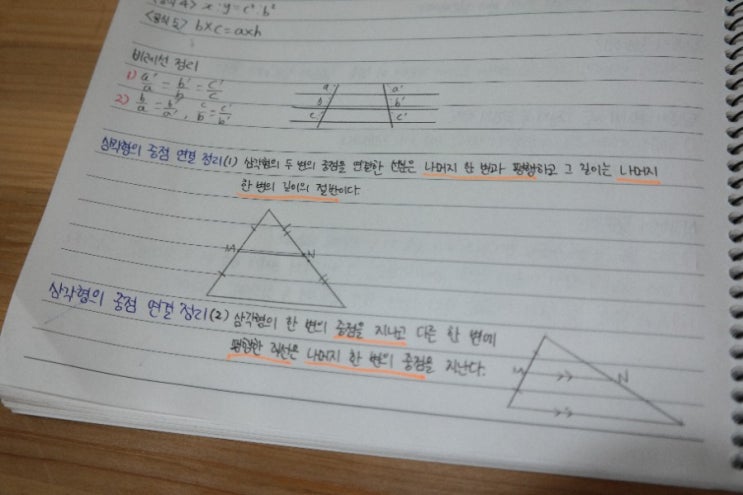 <공식 4> x:y=c²:b²
<공식 5> b×c=a×h
비례선 정리
1) a'/a = b'/b = c'/c
2) b/a = b'/a', c/b = c'/b'
a a'
b b'
c c'
삼각형의 중점 연결 정리(1) 삼각형의 두 변의 중점을 연결한 선분은 나머지 한 변과 평행하고 그 길이는 나머지
한 변의 길이의 절반이다.
M N
삼각형의 중점 연결 정리(2) 삼각형의 한 변의 중점을 지나고 다른 한 변에
평행한 직선은 나머지 한 변의 중점을 지난다.
M N